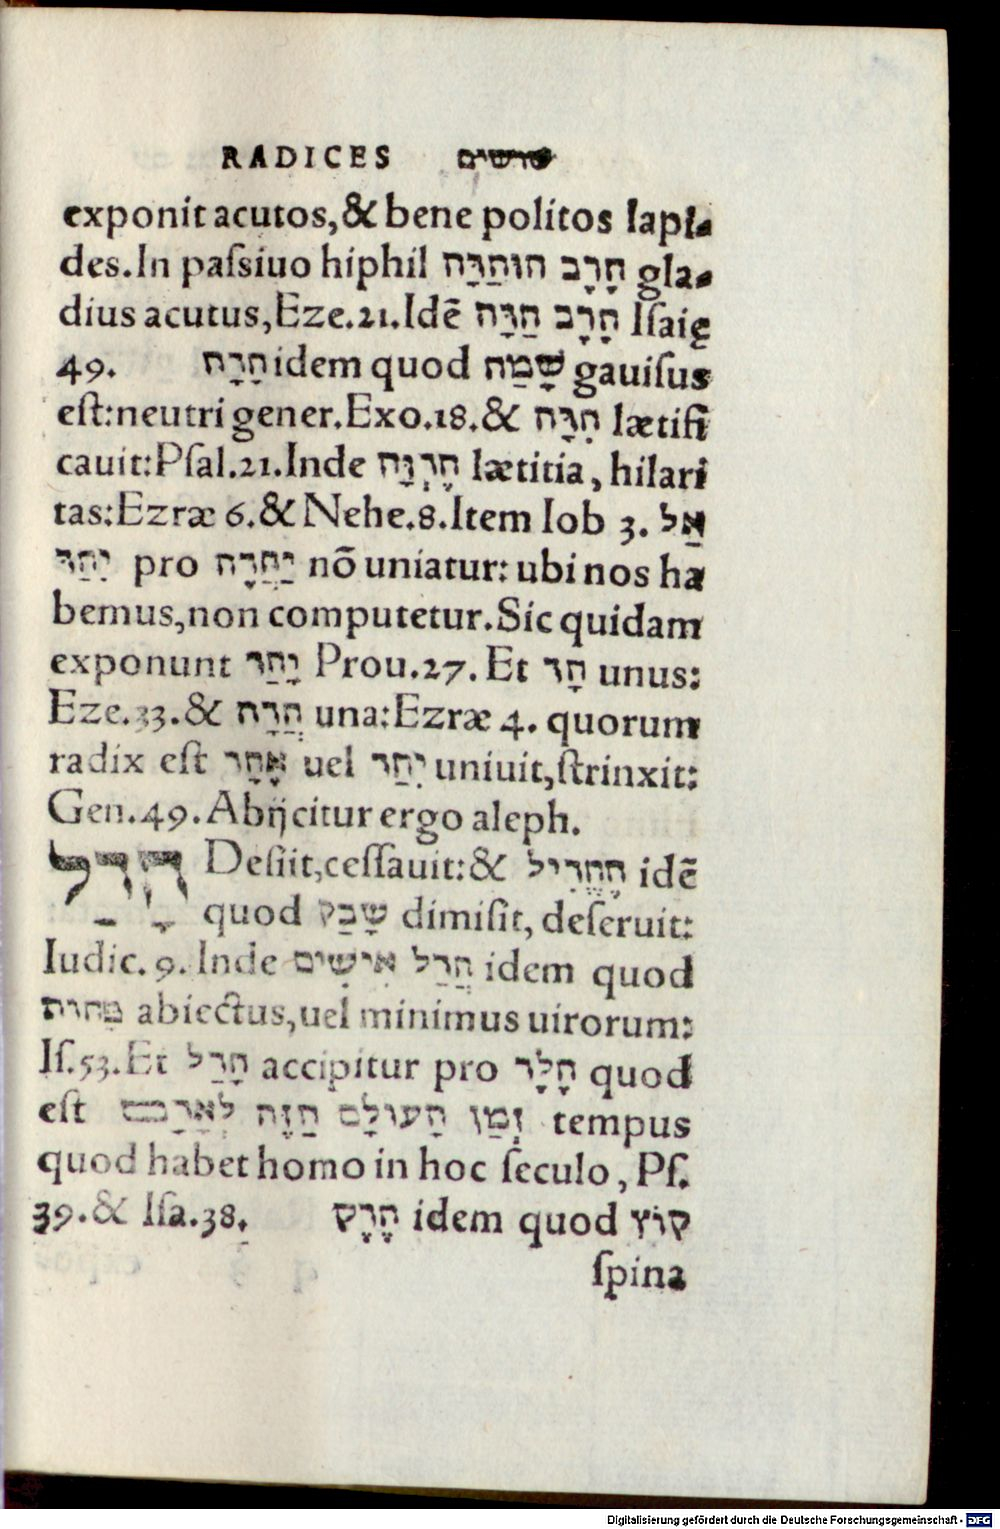 RADICES שרשים
exponit acutos,& bene politos lapi-
des.In paſsiuo hiphil חֶרֶב הוּחַדָּה gla-
dius acutus,Eze.21.Idē חֶרֶב חַדָּה Iſaię
49. חָדָה idem quod שָׂמַח gauiſus
eſt:neutri gener.Exo.18.& חִדָּה lætifi
cauit:Pſal.21.Inde חֶדְוָה lætitia, hilari
tas:Ezræ 6.& Nehe.8.Item Iob 3. אַל
יִחַד pro יַחֲדֶה nō uniatur: ubi nos ha
bemus,non computetur.Sic quidam
exponunt יָחַד Prou.27. Et חָד unus:
Eze.33.& חֲדָה una:Ezræ 4. quorum
radix eſt אֶחָד uel יִחַד univit,ſtrinxit:
Gen.49.Abijcitur ergo aleph.
חָדַל Deſiit,ceſſauit:& הֶחֱדִיל idē
quod שָׁבַק dimiſit, deſeruit:
Iudic. 9. Inde חֲדַל אִישִׁים idem quod
פָּחוּת abiectus,uel minimus uirorum:
Iſ.53.Et חָדַל accipitur pro חֶלֶד quod
eſt זְמַן הָעוֹלָם הַזֶּה לְאָדָם tempus
quod habet homo in hoc ſeculo, Pſ.
39.& Iſa.38. חֶדֶק idem quod קוֹץ
ſpina
Digitalisierung gefördert durch die Deutsche Forschungsgemeinschaft - DFG